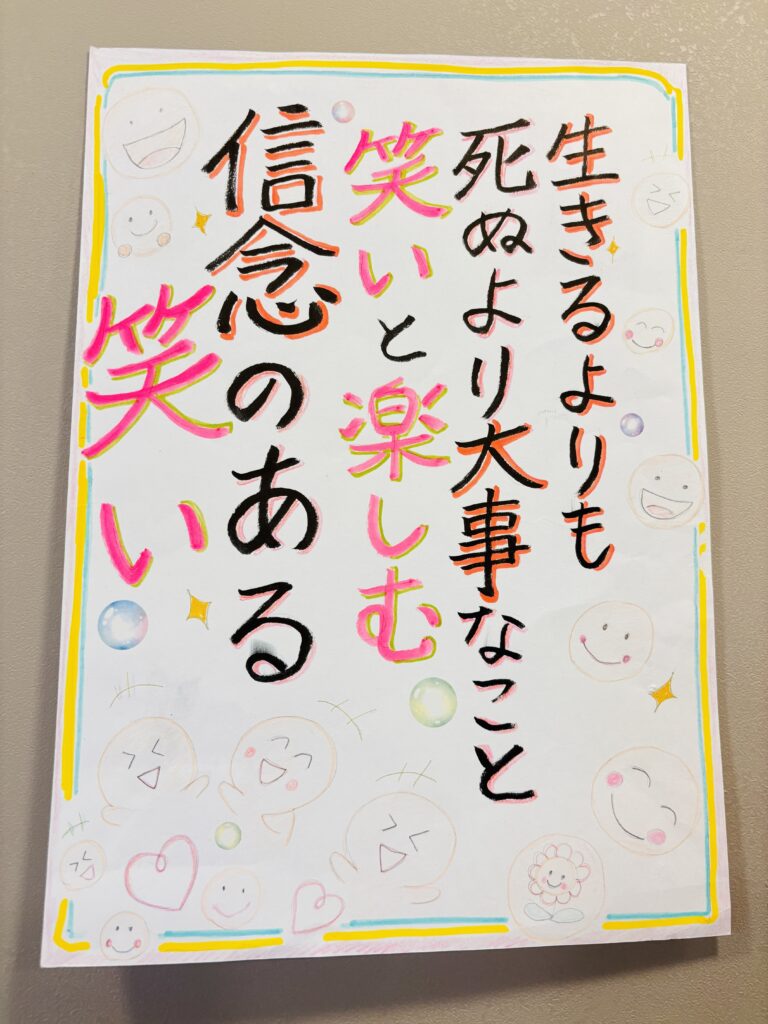 生きるよりも
死ぬより大事なこと
笑いと楽しむ
信念のある
笑い